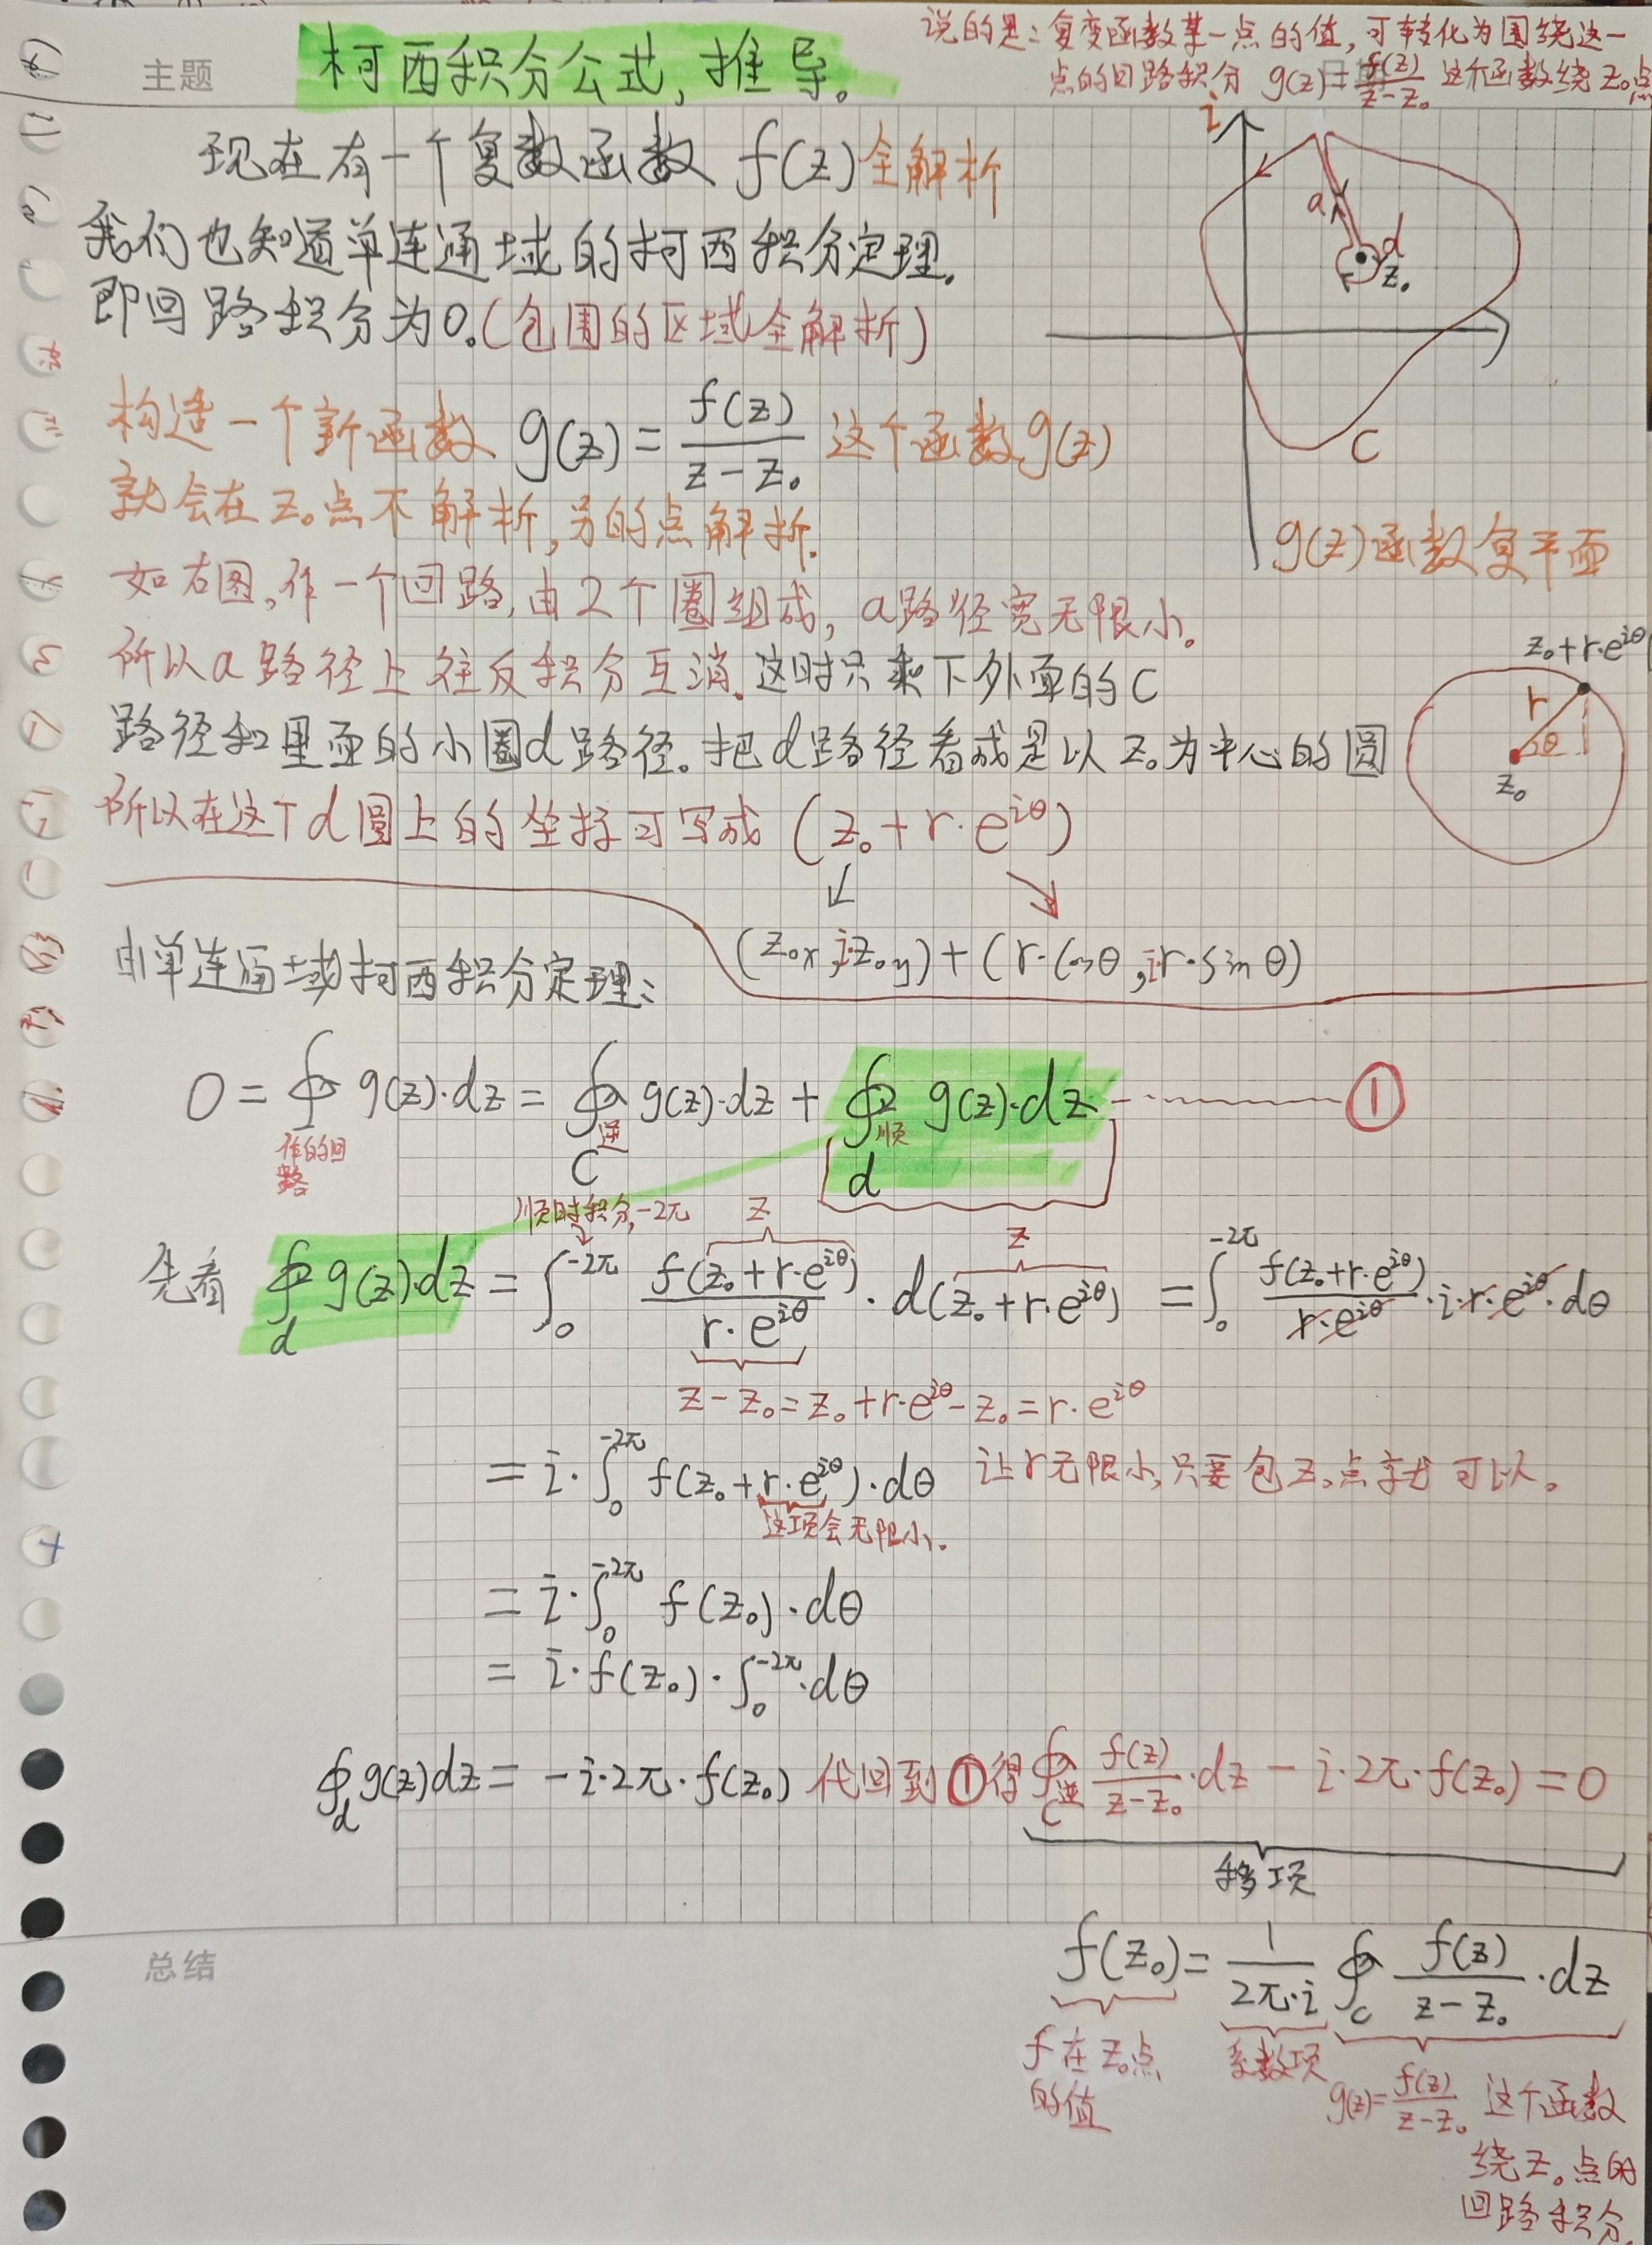 说的是：复变函数某一点的值，可转化为围绕这一
点的回路积分 g(z)=f(z)/(z-z₀) 这个函数绕z₀点
主题
柯西积分公式，推导。
现在有一个复数函数 f(z) 全解析
我们也知道单连通域的柯西积分定理。
即回路积分为0。(包围的区域全解析)
i
a
d
z₀
C
构造一个新函数 g(z) = f(z)/(z-z₀) 这个函数g(z)
就会在z₀点不解析，另的点解析。
g(z)函数复平面
如右图，作一个回路，由2个圈组成，a路径宽无限小。
所以a路径上往反积分互消。这时只剩下外面的C
路径和里面的小圈d路径。把d路径看成是以z₀为中心的圆
z₀+r·e^{iθ}
r
θ
z₀
所以在这个d圆上的坐标可写成 (z₀+r·e^{iθ})
(z₀ₓ, i·z₀ᵧ)+(r·cosθ, i·r·sinθ)
由单连通域柯西积分定理：
0 = ∮_{作的回路} g(z)·dz = ∮_{C 逆} g(z)·dz + ∮_{d 顺} g(z)·dz ------- ①
顺时积分,-2π
z
z
先看 ∮_d g(z)·dz = ∫_0^{-2π} f(z₀+r·e^{iθ})/(r·e^{iθ}) · d(z₀+r·e^{iθ}) = ∫_0^{-2π} f(z₀+r·e^{iθ})/(r·e^{iθ}) ·i·r·e^{iθ}·dθ
z-z₀=z₀+r·e^{iθ}-z₀=r·e^{iθ}
= i·∫_0^{-2π} f(z₀+r·e^{iθ})·dθ 让r无限小，只要包z₀点就可以。
这项会无限小。
= i·∫_0^{-2π} f(z₀)·dθ
= i·f(z₀)·∫_0^{-2π}·dθ
∮_d g(z)dz = -i·2π·f(z₀) 代回到①得 ∮_{C 逆} f(z)/(z-z₀)·dz - i·2π·f(z₀) = 0
移项
总结
f(z₀) = 1/(2π·i) ∮_C f(z)/(z-z₀)·dz
f在z₀点
的值
系数项
g(z)=f(z)/(z-z₀) 这个函数
绕z₀点的
回路积分.